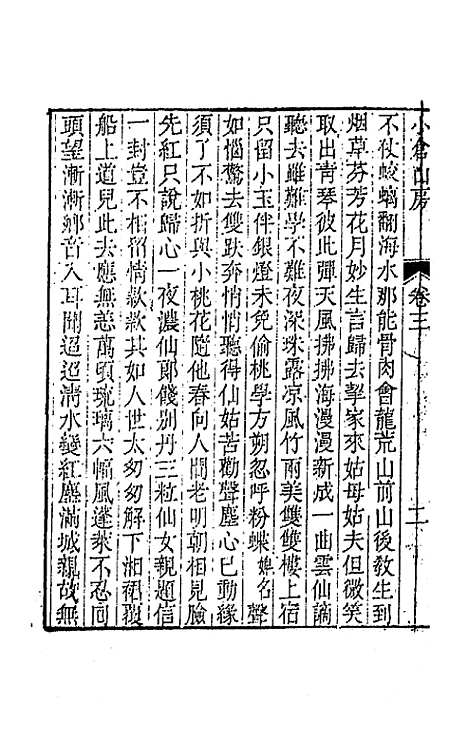 小倉山房 卷三 二
不仗蛟螭翻海水那能骨肉會龍荒山前山後教生到
烟草芬芳花月妙生言歸去挈家來姑母姑夫但微笑
取出靑琴彼此彈天風拂拂海漫漫新成一曲雲仙謫
聽去雖難學不難夜深珠露凉風竹雨美雙雙樓上宿
只留小玉伴銀燈未免偷桃學方朔忽呼粉蝶婢名聲
如惱驚去雙趺奔悄悄聽得仙姑苦勸聲塵心已動緣
須了不如折與小桃花隨他春向人間老明朝相見臉
先紅只說歸心一夜濃仙郞餞别丹三粒仙女親題信
一封豈不相留情款款其如人世太匆匆解下湘裙覆
船上道兒此去應無恙萬頃琉璃六幅風蓬萊不忍囘
頭望漸漸鄉音入耳聞迢迢淸水變紅塵滿城親故無